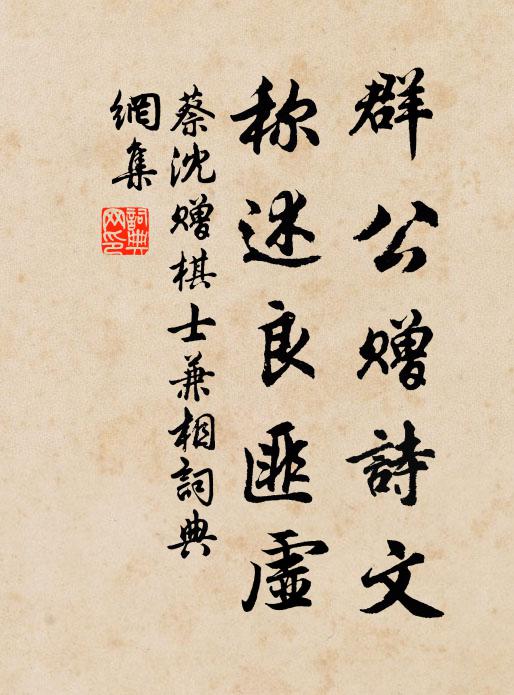 群公赠詩文
称述良匪虛
蔡沈赠棋士兼相詞典
網集
詞典
网印